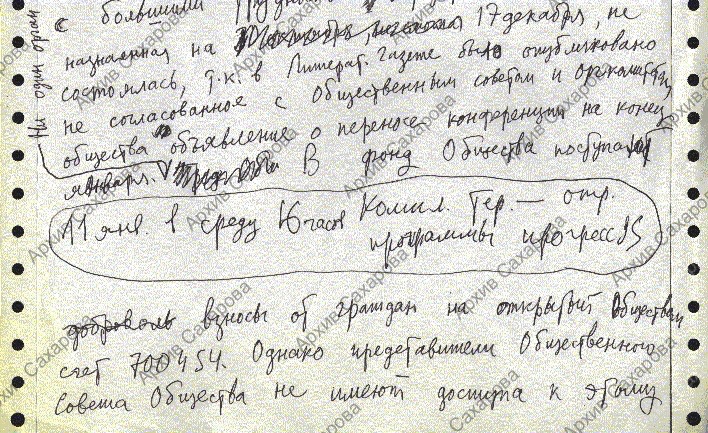 с большими
назначенная на 17 декабря, не
состоялась, т.к. в Литерат. газете было опубликовано
не согласованное с Общественным советом и оргкомитетом
общества объявление о переносе конференции на конец
января. В фонд Общества поступают
11 янв. в среду 16 часов Комил. Тер. — отр.
программы прогресс
взносы от граждан на открытый Обществом
счет 700454. Однако представители Общественного
Совета Общества не имеют доступа к этому
Ни один орган
Архив Сахарова